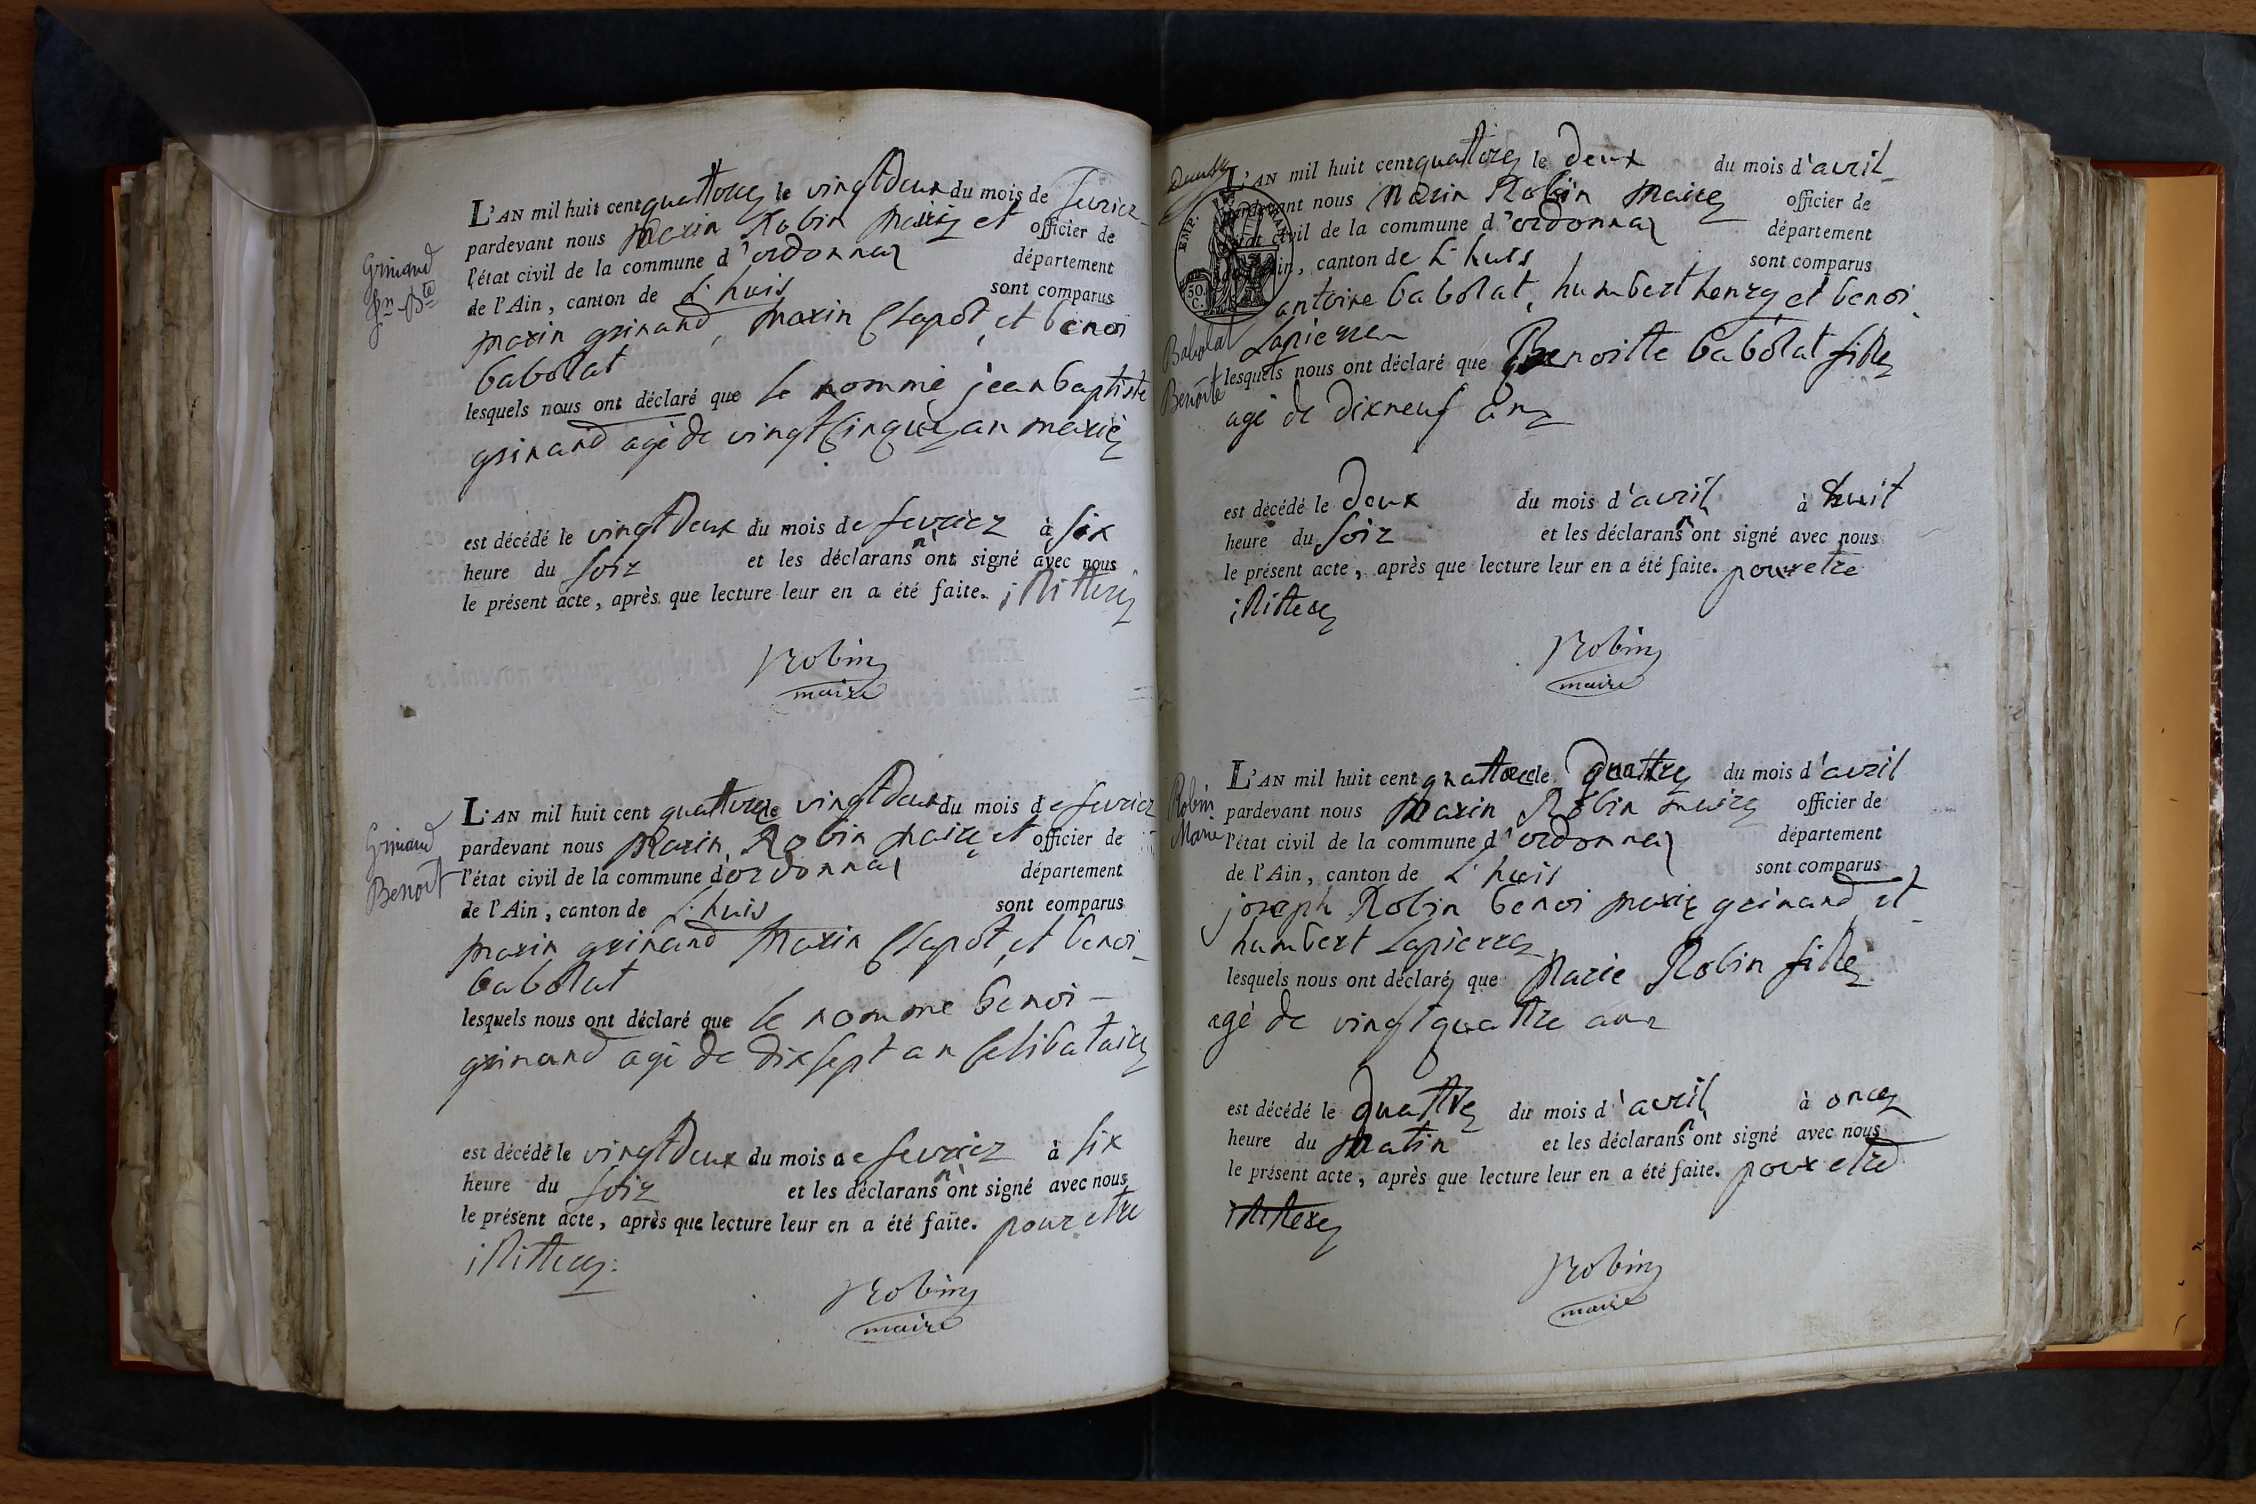 L'AN mil huit cent quattorze le vingt Deux du mois de fevrier
pardevant nous Marin Robin Maire et officier de
l'état civil de la commune d'ordonnaz département
de l'Ain, canton de L'huis sont comparus
Grinand
Jn Bte
marin grinand, marin Chapot, et benoi
babolat
lesquels nous ont déclaré que le nommé jean baptiste
grinand agé de vingt Cinque an marié
est décédé le vingt Deux du mois de fevrier à six
heure du soir et les déclarans n ont signé avec nous
le présent acte, après que lecture leur en a été faite. illittere
Robin
maire
L'AN mil huit cent quattorze le vingt Deux du mois de fevrier
pardevant nous Marin Robin Maire et officier de
Grinand
Benoît
l'état civil de la commune d'ordonnaz département
de l'Ain, canton de L'huis sont comparus
marin grinand marin Chapot, et benoi
babolat
lesquels nous ont déclaré que le nomme benoi
grinand agé de dix sept an Celibataire
est décédé le vingt Deux du mois de fevrier à six
heure du soir et les déclarans n'ont signé avec nous
le présent acte, après que lecture leur en a été faite. pour etre
illittere
Robin
maire
L'AN mil huit cent quattorze le Deux du mois d'avril
pardevant nous Marin Robin Maire officier de
l'état civil de la commune d'ordonnaz département
de l'Ain, canton de L'huis sont comparus
EMP.
50 C.
antoine babolat, humbert henry et benoi
Lapierre
Babolat
Benoite
lesquels nous ont déclaré que Benoitte babolat fille
agé de Dixneuf an
est décédé le Deux du mois d'avril à huit
heure du soir et les déclarans n ont signé avec nous
le présent acte, après que lecture leur en a été faite. pour etre
illittere
Robin
maire
L'AN mil huit cent quattorze le quattre du mois d'avril
Robin
Marie
pardevant nous Marin Robin maire officier de
l'état civil de la commune d'ordonnaz département
de l'Ain, canton de L'huis sont comparus
joseph Robin benoi marie grinand et
humbert Lapierre
lesquels nous ont déclaré que Marie Robin fille
agé de vingt quattre an
est décédé le quattre du mois d'avril à once
heure du Matin et les déclarans n ont signé avec nous
le présent acte, après que lecture leur en a été faite. pour etre
illittere
Robin
maire